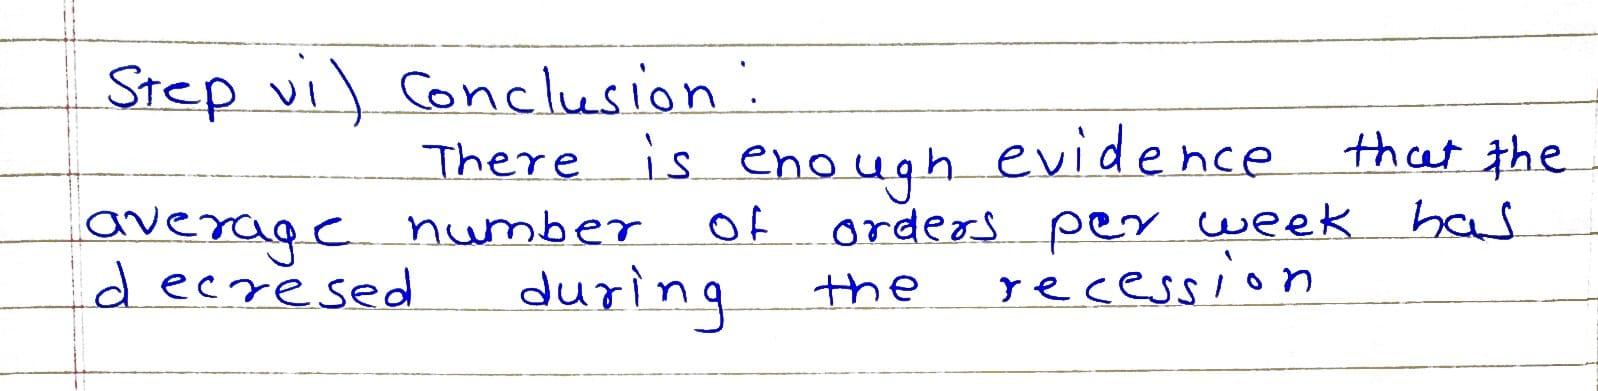 Step vi) Conclusion :
There is enough evidence that the
average number of orders per week has
decresed during the recession